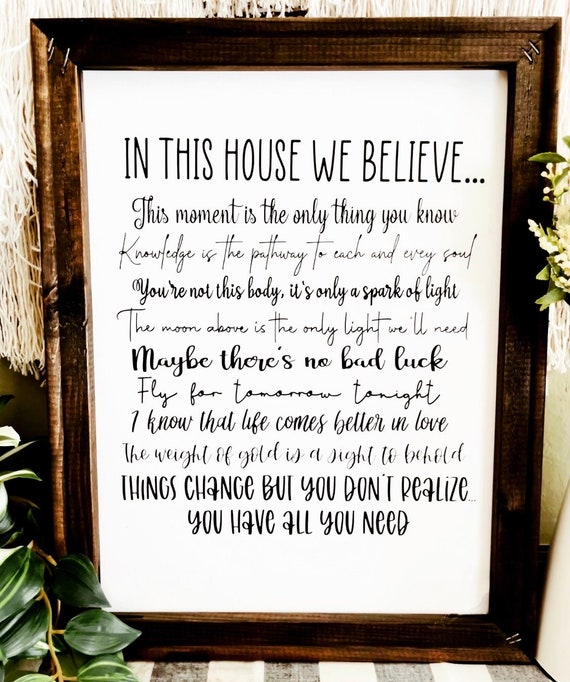 IN THIS HOUSE WE BELIEVE...
This moment is the only thing you know
Knowledge is the pathway to each and evey soul
You're not this body, it's only a spark of light
The moon above is the only light we'll need
Maybe there's no bad luck
Fly for tomorrow tonight
I know that life comes better in love
The weight of gold is a sight to behold
THINGS CHANGE BUT YOU DON'T REALIZE...
YOU HAVE ALL YOU NEED